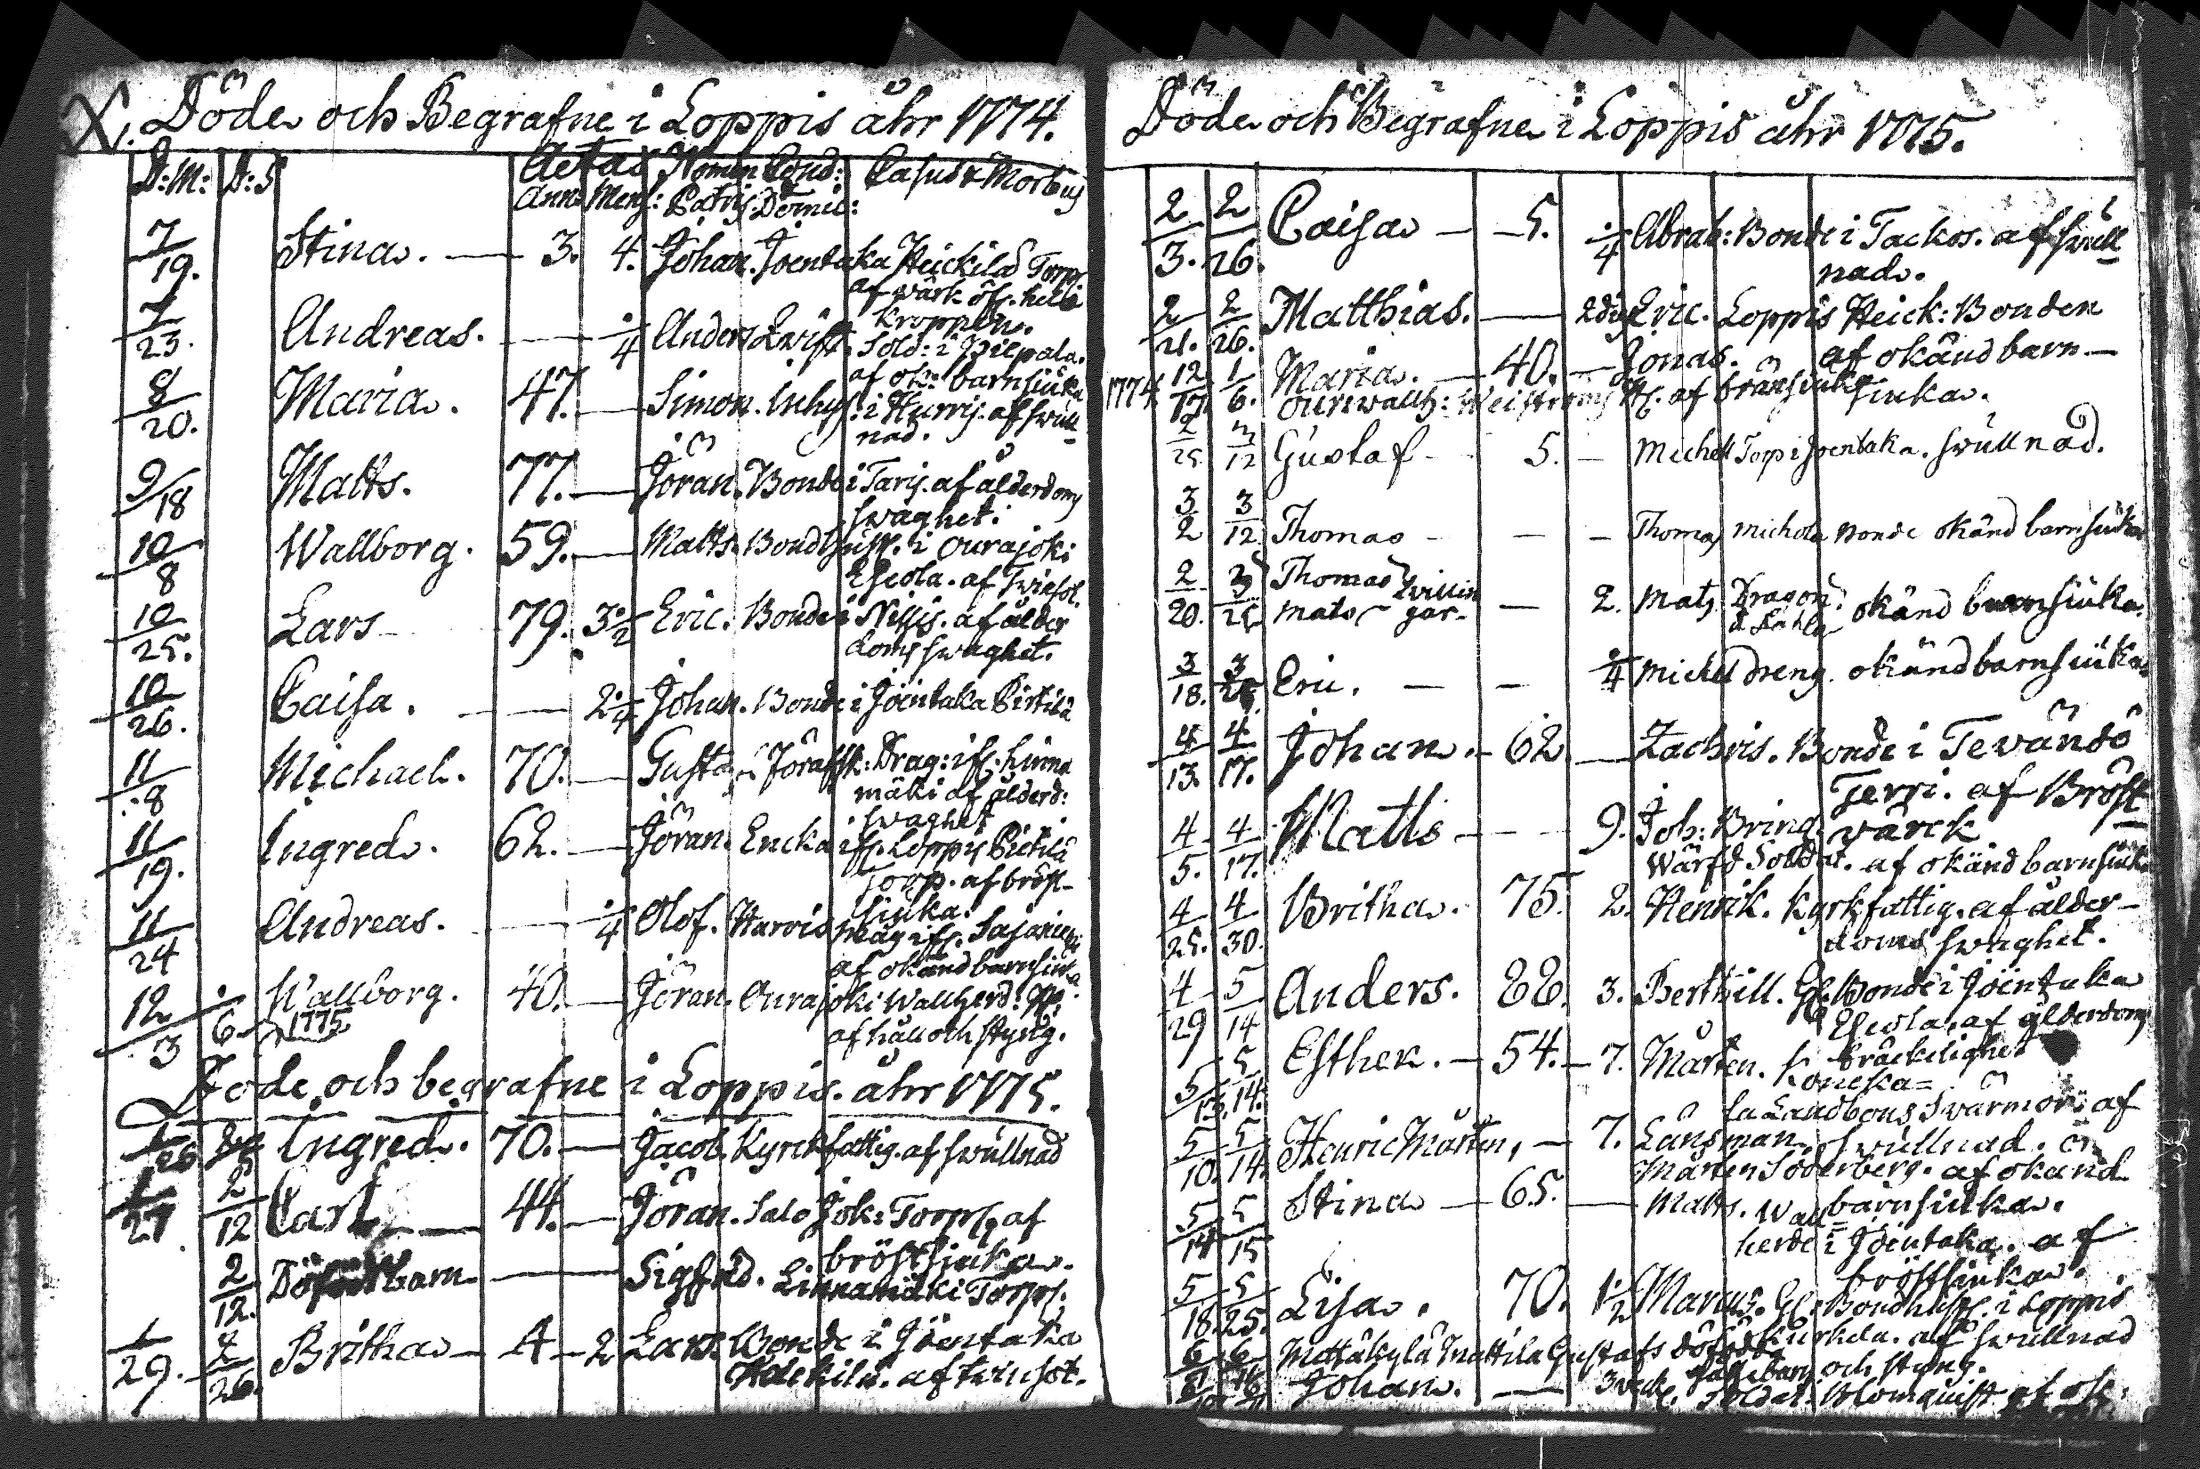 X. Döde och Begrafne i Loppis åhr 1774.
D: M: D: S Aetas Nomen Cond: Casus & Morbus
Ann: Mens: Patris Domic:
7/19. Stina. — 3. 4. Johan. Joentaka Heickilä Torp
af wärk öfr. hela
kroppen.
7/23. Andreas. — 1/4 Anders Sold: i Pilpala.
af ok: barnsiuka
8/20. Maria. 47. — Simon. Inhys: i Hurris. af swull
nad.
9/18 Matts. 77. — Jöran. Bonde i Taris. af ålderdoms
swaghet.
10/8 Wallborg. 59. — Matts. Bond hust. i Ourajoki
Escola. af Twinsot.
10/25. Lars 79. 3 1/2 Eric. Bonde i Nissis. af ålder
doms swaghet.
10/26. Caisa. — 2 1/4 Johan. Bonde i Jöintaka Pirtilä
11/8 Michael. 70. — Drag: hinna
mäki af ålderd:
swaghet
11/19. Ingred. 62. — Jöran. Encka Loppis Pietilä
Torp. af bröst-
siuka.
11/24 Andreas. — 1/4 Olof. Harvis Sajanieki
af okänd barnsiuka
12/3 1/6 1775 Wallborg. 40. — Jöran. Ourajoki Wallherd:
af håll och styng.
Döde och begrafne i Loppis. åhr 1775.
1/26 Ingred. 70. — Jacob. Kyrckfattig. af swullnad
1/27 2/12 Carl — 44. — Jöran. Salo Jok: Torp. af
bröstsiuka.
2/12. Dödfödt barn — Sigfrid. Linnamäki Torp.
1/29. 2/26. Britha — 4 — 2 Lars. Bonde i Jöentaka
Heickilä. af twinsot.
Döde och Begrafne i Loppis åhr 1775.
2/3. 2/26. Caisa — 5. 1/4 Abrah: Bonde i Tackos. af swull
nad.
2/21. 2/26. Matthias. — 2 dyg Eric. Loppis Heick: Bonden
af okänd barn-
siuka.
1774 12/17. 1/6. Maria. — 40. — Jonas.
af bränsiuka
2/25 3/12 Gustaf — 5. — Michell Torp i Joentaka. swullnad.
3/2 3/12 Thomas — — — Thomas Michola Bonde okänd barnsiuka
2/20. 3/25 Thomas Mats Twillin gar. — 2. Mats. Dragon: okänd barnsiuka.
3/18. 3/26 Eric. — — 1/4 Michel Dreng. okänd barnsiuka
4/13. 4/17. Johan. — 62 — Zachris. Bonde i Tevändö
Jerri. af Bröst
wärck
4/5. 4/17. Matts — — 9. Joh: Bring
Wärfd Soldat. af okänd barnsiuka
4/25. 4/30. Britha. 75. 2. Henrik. Kyrkfattig. af ålder-
doms swaghet.
4/29 5/14 Anders. 88. 3. Berthill. Gl. Bonde i Jöintaka
Escola, af ålderdoms
bräckelighet
5/13. 5/14. Esther. — 54. — 7. Mårten. Koncka-
la Landbons Swärmor: af
swullnad.
5/10. 5/14. Henric Mårten, — 7. Länsman,
Mårten Söderberg. af okänd
barnsiuka.
5/14 5/15 Stina — 65. — Matts. Wall=
herde i Jöintaka. af
bröstsiuka.
5/18. 5/25. Lisa. 70. 1 1/2 Marcus. Gl: Bondhust. i Loppis
Kurkela. af swullnad
och styng.
6 6 Mottäkylä Mattila Gustafs dödfödda
Johan. — 3 veck Soldat: Blomquist af ok: